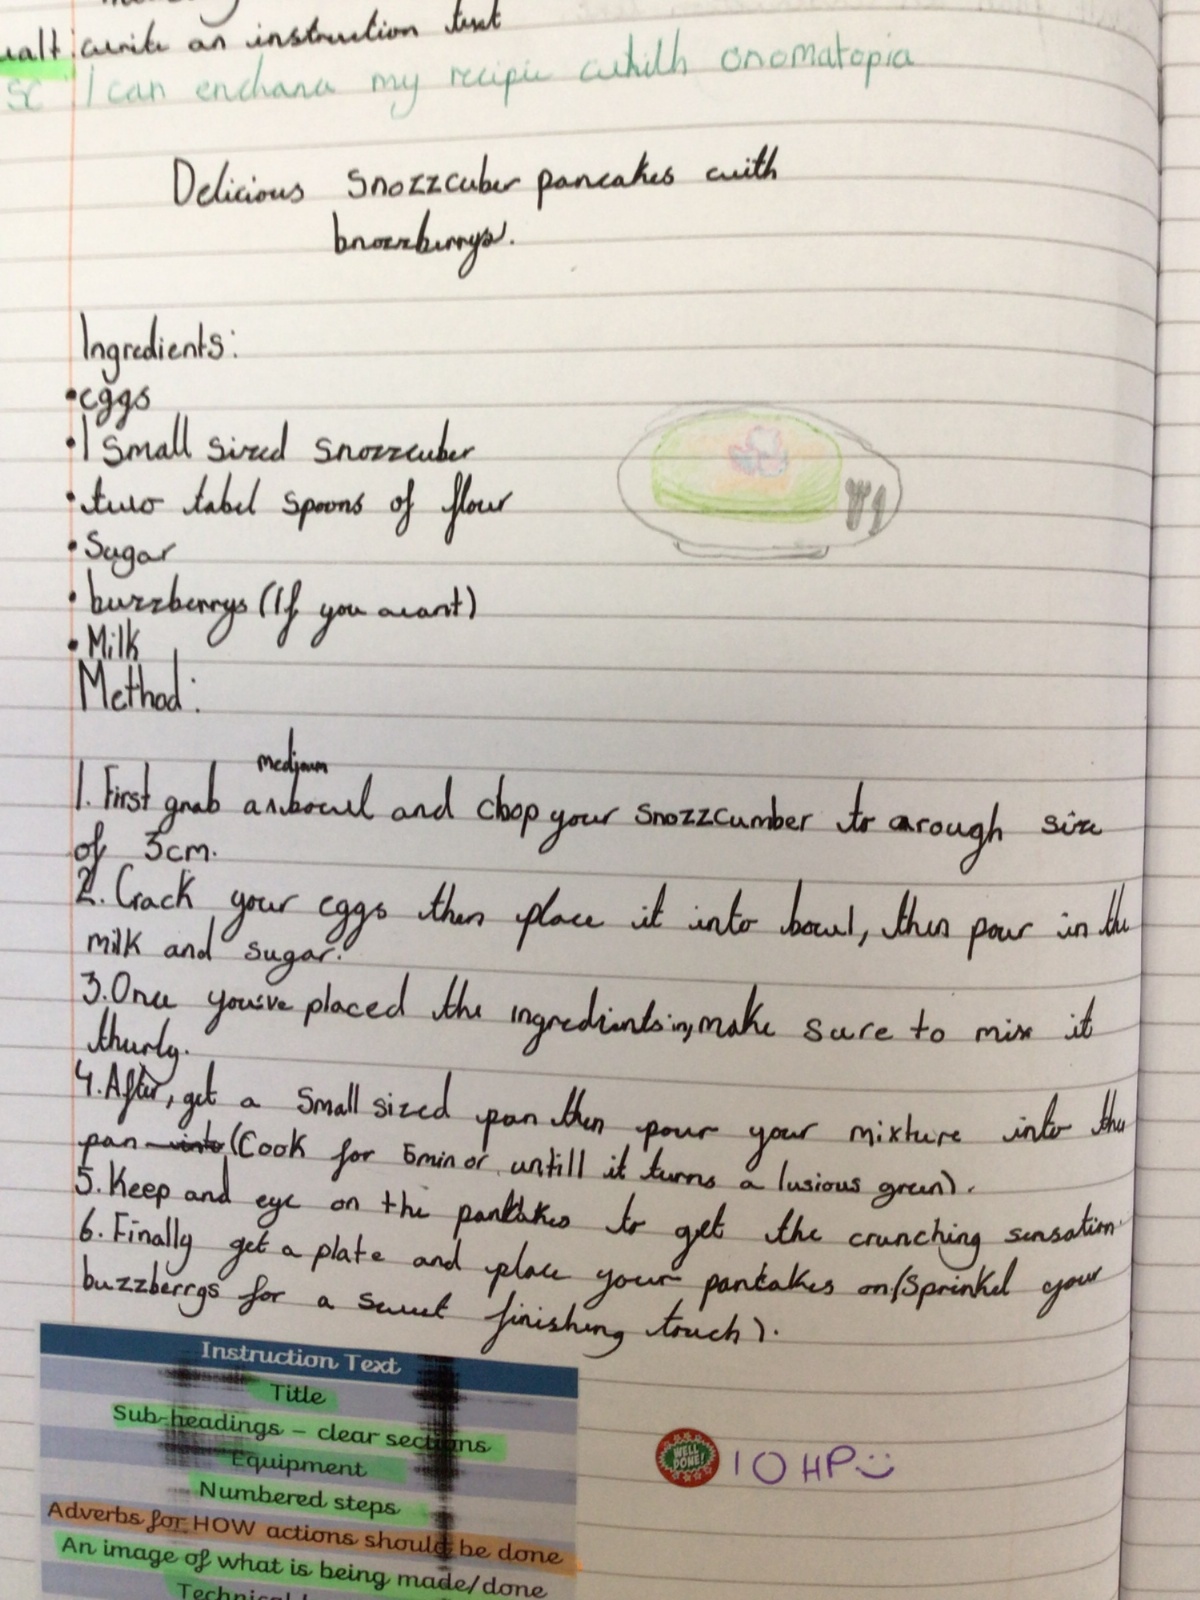 walt write an instruction text
SC I can enchana my recipie whith onomatopia
Delicious Snozzcuber pancakes with
bnozzberrys.
Ingredients:
•eggs
•1 Small sized snozzcuber
•two tabel spoons of flour
•Sugar
•buzzberrys (If you want)
•Milk
Method:
medium
1. First grab a bowl and chop your snozzcumber to a rough size
of 3cm.
2. Crack your eggs then place it into bowl, then pour in the
milk and sugar.
3. Once you've placed the ingredients in, make sure to mix it
thurly.
4. After, get a small sized pan then pour your mixture into the
pan into (Cook for 5min or untill it turns a lusious green).
5. Keep and eye on the pankakes to get the crunching sensation
6. Finally get a plate and place your pankakes on (Sprinkel your
buzzberrys for a sweet finishing touch).
Instruction Text
Title
Sub-headings – clear sections
Equipment
Numbered steps
Adverbs for HOW actions should be done
An image of what is being made/done
WELL DONE! 10 HP